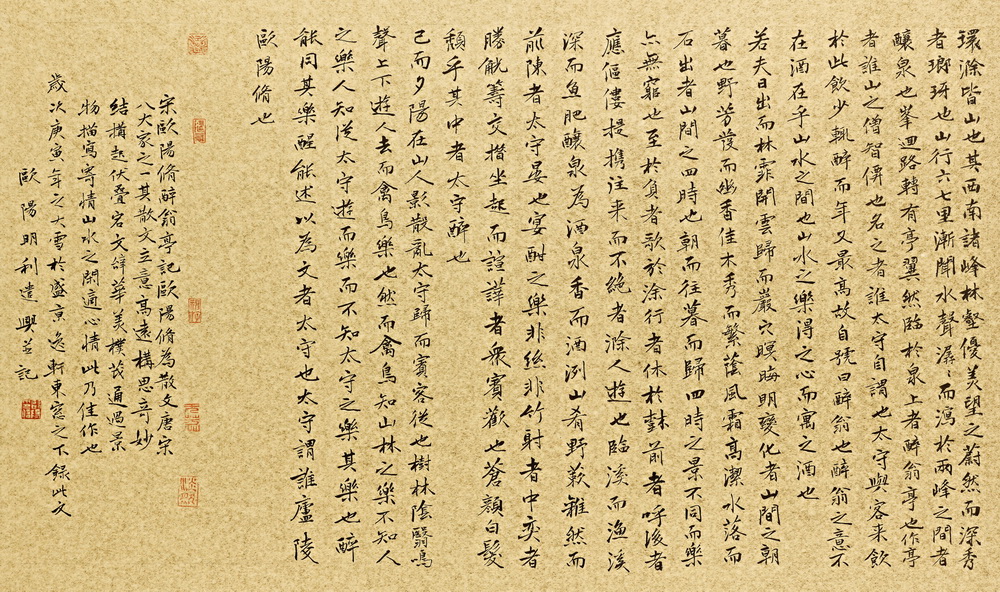 環滁皆山也其西南諸峰林壑優美望之蔚然而深秀
者瑯琊也山行六七里漸聞水聲潺〻而瀉於兩峰之間者
釀泉也峯迴路轉有亭翼然臨於泉上者醉翁亭也作亭
者誰山之僧智僊也名之者誰太守自謂也太守與客来飲
於此飲少輒醉而年又最高故自號曰醉翁也醉翁之意不
在酒在乎山水之間也山水之樂得之心而寓之酒也
若夫日出而林霏開雲歸而巖穴暝晦明變化者山間之朝
暮也野芳發而幽香佳木秀而繁蔭風霜高潔水落而
石出者山間之四時也朝而往暮而歸四時之景不同而樂
亦無窮也至於負者歌於涂行者休於樹前者呼後者
應傴僂提携往来而不絕者滁人遊也臨溪而漁溪
深而魚肥釀泉為酒泉香而酒洌山肴野蔌雜然而
前陳者太守宴也宴酣之樂非絲非竹射者中奕者
勝觥籌交措坐起而諠譁者衆賓歡也蒼顏白髮
頹乎其中者太守醉也
已而夕陽在山人影散亂太守歸而賓客從也樹林陰翳鳴
聲上下遊人去而禽鳥樂也然而禽鳥知山林之樂不知人
之樂人知從太守遊而樂而不知太守之樂其樂也醉
能同其樂醒能述以為文者太守也太守謂誰廬陵
歐陽脩也
宋歐陽脩醉翁亭記歐陽脩為散文唐宋
八大家之一其散文立意高遠構思奇妙
結構起伏疊宕文辞華美樸茂通過景
物描寫寄情山水之閑適心情此乃佳作也
歲次庚寅年之大雪於盛京逸軒東窓之下錄此文
歐陽明利遣興並記